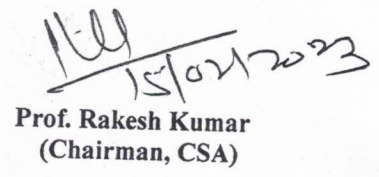 15/02/2023
Prof. Rakesh Kumar
(Chairman, CSA)